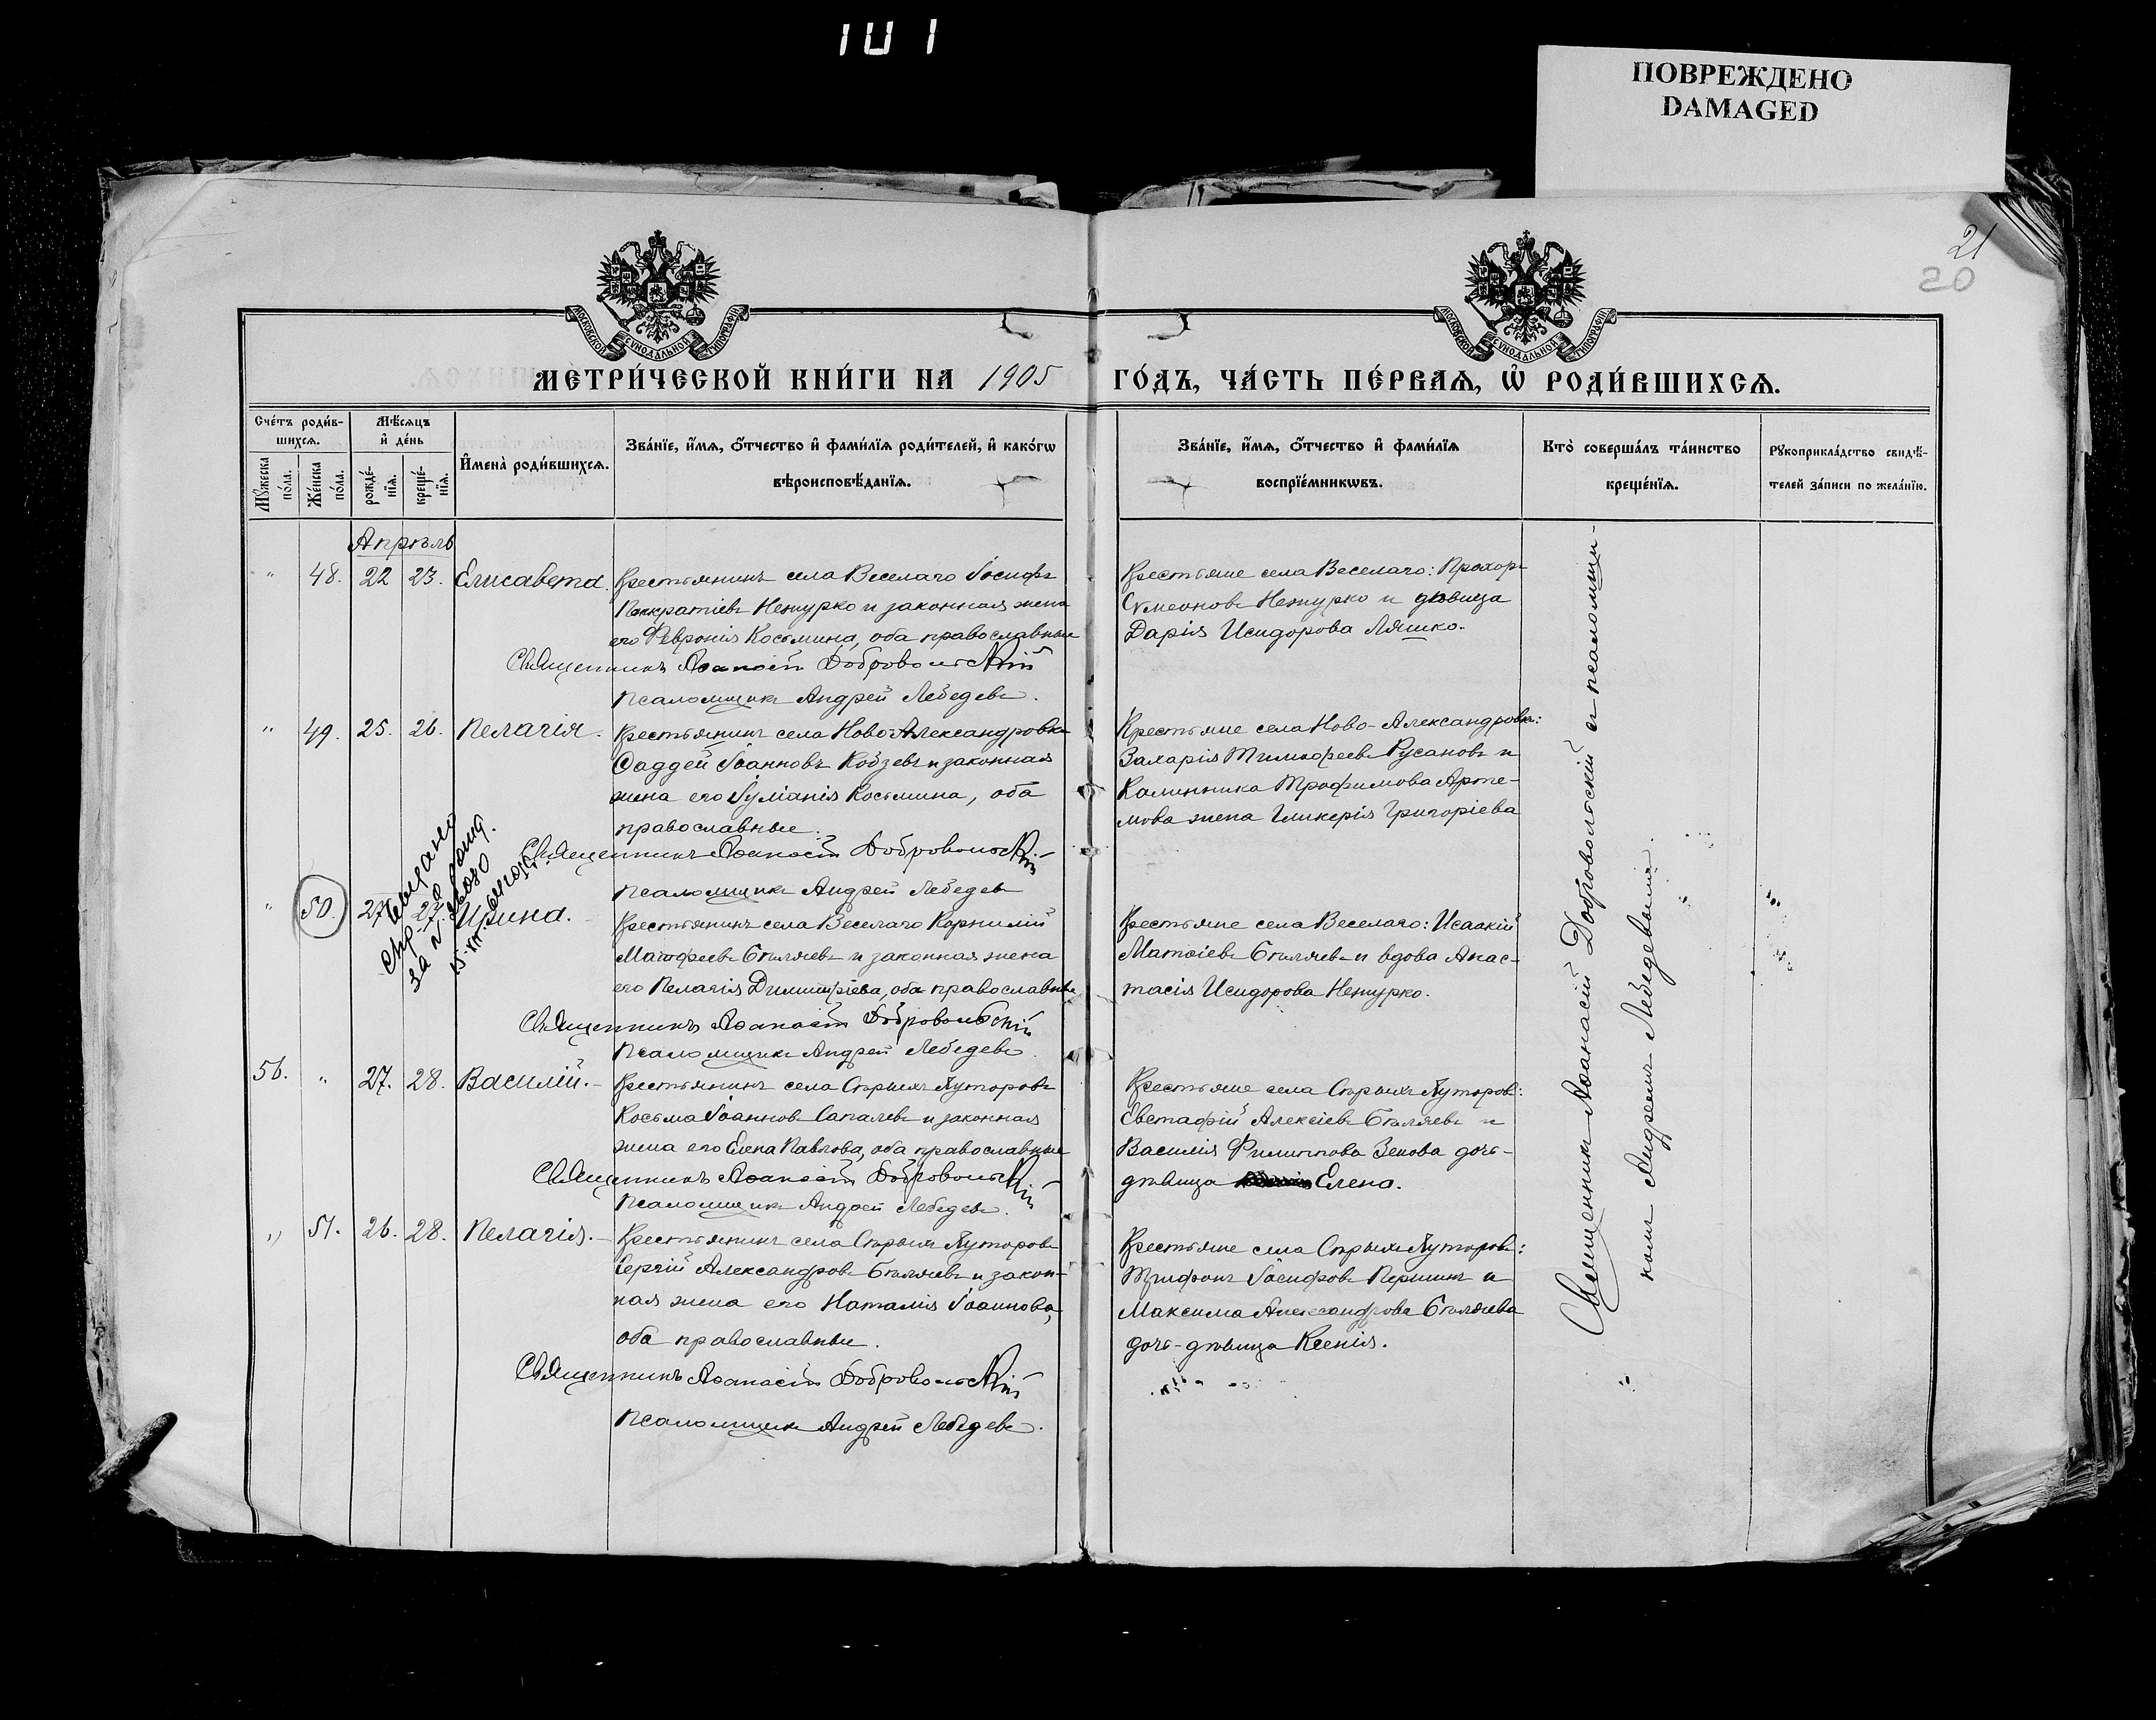 101
ПОВРЕЖДЕНО
DAMAGED
21
20
МОСКОВСКОЙ СѴНОДАЛЬНОЙ ТИПОГРАФІИ
МОСКОВСКОЙ СѴНОДАЛЬНОЙ ТИПОГРАФІИ
МЕТРИ́ЧЕСКОЙ КНИ́ГИ НА 1905 ГО́ДЪ, ЧА́СТЬ ПЕ́РВАѦ, Ѡ҆ РОДИ́ВШИХСѦ.
Сче́тъ роди́в-
шихсѧ.
Мꙋ́жеска по́ла.
Же́нска по́ла.
Мѣ́сѧцъ
и҆ де́нь
рожде́-
нїѧ.
креще́-
нїѧ.
И҆мена̀ роди́вшихсѧ.
Зва́нїе, и҆́мѧ, ѻ҆́тчество и҆ фами́лїѧ роди́телей, и҆ како́гѡ
вѣроисповѣ́данїѧ.
Зва́нїе, и҆́мѧ, ѻ҆́тчество и҆ фами́лїѧ
воспрїе́мникѡвъ.
Кто̀ соверша́лъ та́инство
креще́нїѧ.
Рꙋкоприкла́дство свидѣ́-
телей за́писи по жела́нїю.
Апрѣль
" 48. 22 23. Елисавета. Крестьянинъ села Веселаго Іосифъ
Панкратіевъ Нежурко и законная жена
его Феврoнія Косьмина, оба православные
Священникъ Аѳанасій Добровольскій
Псаломщикъ Андрей Лебедевъ.
Крестьяне села Веселаго: Прохоръ
Сѵмеоновъ Нежурко и дѣвица
Дарія Исидорова Ляшко.
" 49. 25. 26. Пелагія. Крестьянинъ села Ново-Александровки
Фаддей Іоанновъ Кобзевъ и законная
жена его Іуліанія Косьмина, оба
православные.
Священникъ Аѳанасій Добровольскій
Псаломщикъ Андрей Лебедевъ
Крестьяне села Ново-Александровки:
Захарія Тимоѳеевъ Русановъ и
Калинника Трофимова Арте-
мова жена Гликерія Григоріева
" 50. 27. 27. Ирина. Крестьянинъ села Веселаго Корнилій
Матѳеевъ Бѣляевъ и законная жена
его Пелагія Димитріева, оба православные
Священникъ Аѳанасій Добровольскій
Псаломщикъ Андрей Лебедевъ.
Крестьяне села Веселаго: Исаакій
Матѳіевъ Бѣляевъ и вдова Анас-
тасія Исидорова Нежурко.
56. " 27. 28. Василій. Крестьянинъ села Старыхъ Хуторовъ
Косьма Іоанновъ Сапалевъ и законная
жена его Елена Павлова, оба православные
Священникъ Аѳанасій Добровольскій
Псаломщикъ Андрей Лебедевъ.
Крестьяне села Старыхъ Хуторовъ:
Евстафій Алексіевъ Бѣляевъ и
Василія Филиппова Зенова дочь-
дѣвица Елена.
" 51. 26. 28. Пелагія. Крестьянинъ села Старыхъ Хуторовъ
Сергій Александровъ Бѣляевъ и закон-
ная жена его Наталія Іоаннова,
оба православные.
Священникъ Аѳанасій Добровольскій
Псаломщикъ Андрей Лебедевъ.
Крестьяне села Старыхъ Хуторовъ:
Трифонъ Іосифовъ Першинъ и
Максима Александрова Бѣляева
дочь-дѣвица Ксенія.
Священникъ Аѳанасій Добровольскій съ псаломщи-
комъ Андреемъ Лебедевымъ.